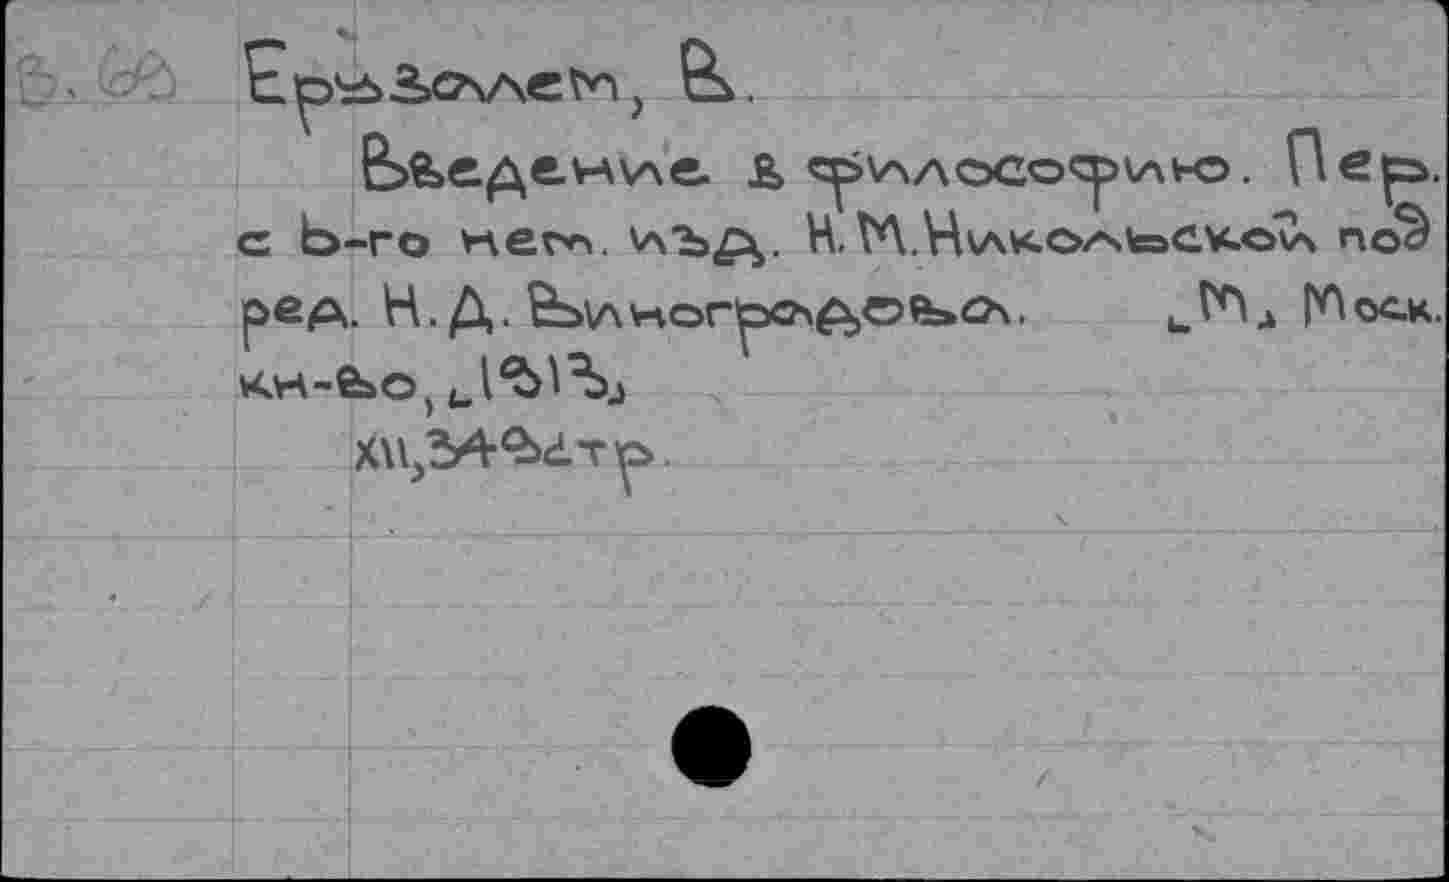 Ерузалем, В.
Введение в философию. Пер.
с 5-го нем. изд. Н.М.Никольской под
ред. Н.Д.Виноградова. [М] Моск.
кн-во, [1913]